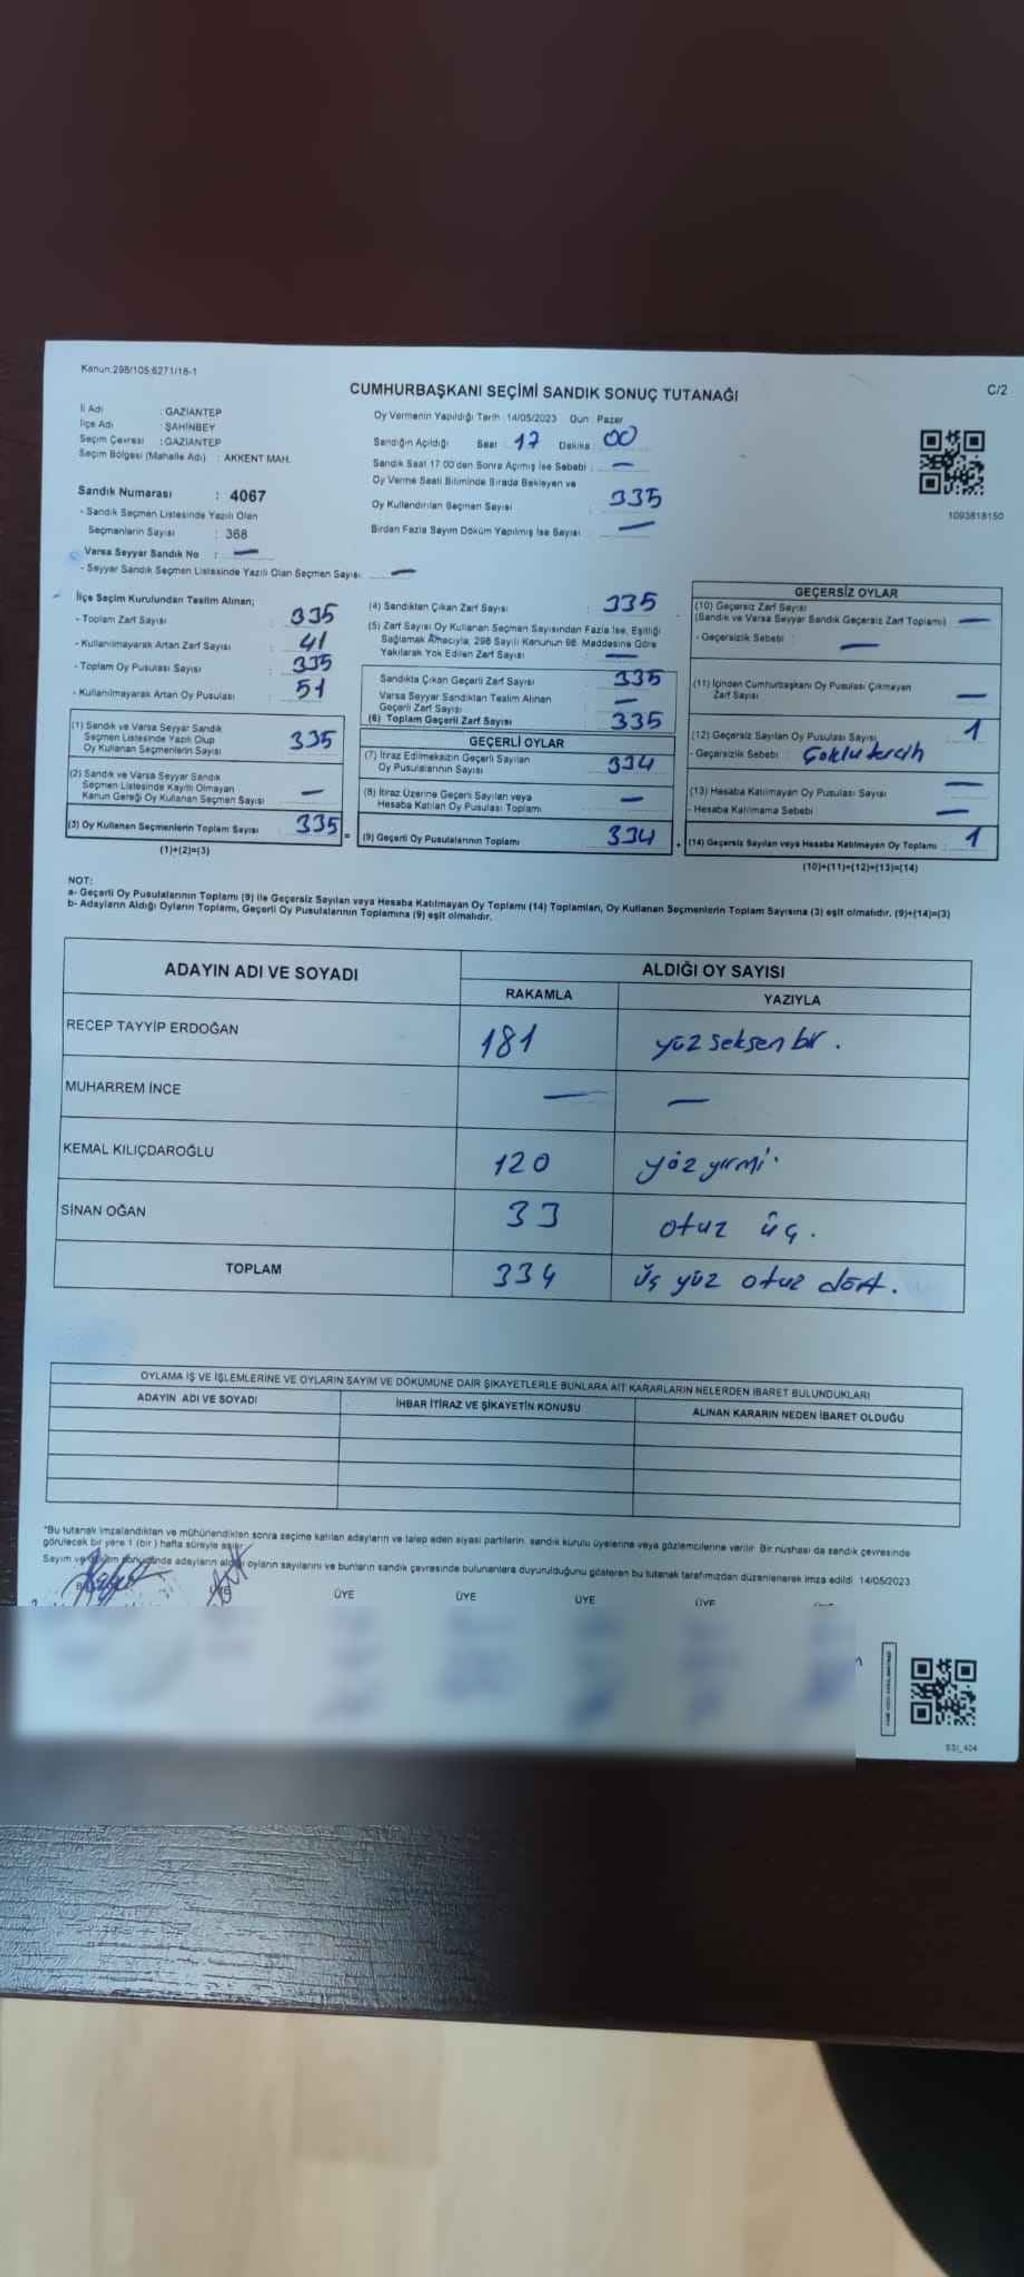 Kanun:298/105:6271/18-1
CUMHURBAŞKANI SEÇİMİ SANDIK SONUÇ TUTANAĞI
C/2
İl Adı : GAZİANTEP
İlçe Adı : ŞAHİNBEY
Seçim Çevresi : GAZİANTEP
Seçim Bölgesi (Mahalle Adı) : AKKENT MAH.
Sandık Numarası : 4067
- Sandık Seçmen Listesinde Yazılı Olan
Seçmenlerin Sayısı : 368
Varsa Seyyar Sandık No : —
- Seyyar Sandık Seçmen Listesinde Yazılı Olan Seçmen Sayısı —
Oy Vermenin Yapıldığı Tarih 14/05/2023 Gün Pazar
Sandığın Açıldığı Saat 17 Dakika 00
Sandık Saat 17.00'den Sonra Açılmış İse Sebebi : —
Oy Verme Saati Bitiminde Sırada Bekleyen ve
Oy Kullandırılan Seçmen Sayısı 335
Birden Fazla Sayım Döküm Yapılmış İse Sayısı —
1093818150
İlçe Seçim Kurulundan Teslim Alınan;
- Toplam Zarf Sayısı : 335
- Kullanılmayarak Artan Zarf Sayısı : 41
- Toplam Oy Pusulası Sayısı : 335
- Kullanılmayarak Artan Oy Pusulası : 51
(1) Sandık ve Varsa Seyyar Sandık
Seçmen Listesinde Yazılı Olup
Oy Kullanan Seçmenlerin Sayısı 335
(2) Sandık ve Varsa Seyyar Sandık
Seçmen Listesinde Kayıtlı Olmayan
Kanun Gereği Oy Kullanan Seçmen Sayısı —
(3) Oy Kullanan Seçmenlerin Toplam Sayısı 335 =
(1)+(2)=(3)
(4) Sandıktan Çıkan Zarf Sayısı : 335
(5) Zarf Sayısı Oy Kullanan Seçmen Sayısından Fazla İse, Eşitliği
Sağlamak Amacıyla, 298 Sayılı Kanunun 98. Maddesine Göre
Yakılarak Yok Edilen Zarf Sayısı : —
Sandıkta Çıkan Geçerli Zarf Sayısı 335
Varsa Seyyar Sandıktan Teslim Alınan
Geçerli Zarf Sayısı —
(6) Toplam Geçerli Zarf Sayısı 335
GEÇERLİ OYLAR
(7) İtiraz Edilmeksizin Geçerli Sayılan
Oy Pusulalarının Sayısı 334
(8) İtiraz Üzerine Geçerli Sayılan veya
Hesaba Katılan Oy Pusulası Toplamı —
(9) Geçerli Oy Pusulalarının Toplamı 334 +
GEÇERSİZ OYLAR
(10) Geçersiz Zarf Sayısı
(Sandık ve Varsa Seyyar Sandık Geçersiz Zarf Toplamı) —
- Geçersizlik Sebebi : —
(11) İçinden Cumhurbaşkanı Oy Pusulası Çıkmayan
Zarf Sayısı —
(12) Geçersiz Sayılan Oy Pusulası Sayısı 1
- Geçersizlik Sebebi : Çoklu tercih
(13) Hesaba Katılmayan Oy Pusulası Sayısı —
- Hesaba Katılmama Sebebi : —
(14) Geçersiz Sayılan veya Hesaba Katılmayan Oy Toplamı : 1
(10)+(11)+(12)+(13)=(14)
NOT:
a- Geçerli Oy Pusulalarının Toplamı (9) ile Geçersiz Sayılan veya Hesaba Katılmayan Oy Toplamı (14) Toplamları, Oy Kullanan Seçmenlerin Toplam Sayısına (3) eşit olmalıdır. (9)+(14)=(3)
b- Adayların Aldığı Oyların Toplamı, Geçerli Oy Pusulalarının Toplamına (9) eşit olmalıdır.
ADAYIN ADI VE SOYADI
ALDIĞI OY SAYISI
RAKAMLA YAZIYLA
RECEP TAYYİP ERDOĞAN 181 yüz seksen bir.
MUHARREM İNCE — —
KEMAL KILIÇDAROĞLU 120 yüz yirmi.
SİNAN OĞAN 33 otuz üç.
TOPLAM 334 üç yüz otuz dört.
OYLAMA İŞ VE İŞLEMLERİNE VE OYLARIN SAYIM VE DÖKÜMÜNE DAİR ŞİKAYETLERLE BUNLARA AİT KARARLARIN NELERDEN İBARET BULUNDUKLARI
ADAYIN ADI VE SOYADI
İHBAR İTİRAZ VE ŞİKAYETİN KONUSU
ALINAN KARARIN NEDEN İBARET OLDUĞU
*Bu tutanak imzalandıktan ve mühürlendikten sonra seçime katılan adayların ve talep eden siyasi partilerin, sandık kurulu üyelerine veya gözlemcilerine verilir. Bir nüshası da sandık çevresinde
görülecek bir yere 1 (bir) hafta süreyle asılır.
Sayım ve döküm sonucunda adayların aldığı oyların sayılarını ve bunların sandık çevresinde bulunanlara duyurulduğunu gösteren bu tutanak tarafımızdan düzenlenerek imza edildi. 14/05/2023
ÜYE ÜYE ÜYE ÜYE